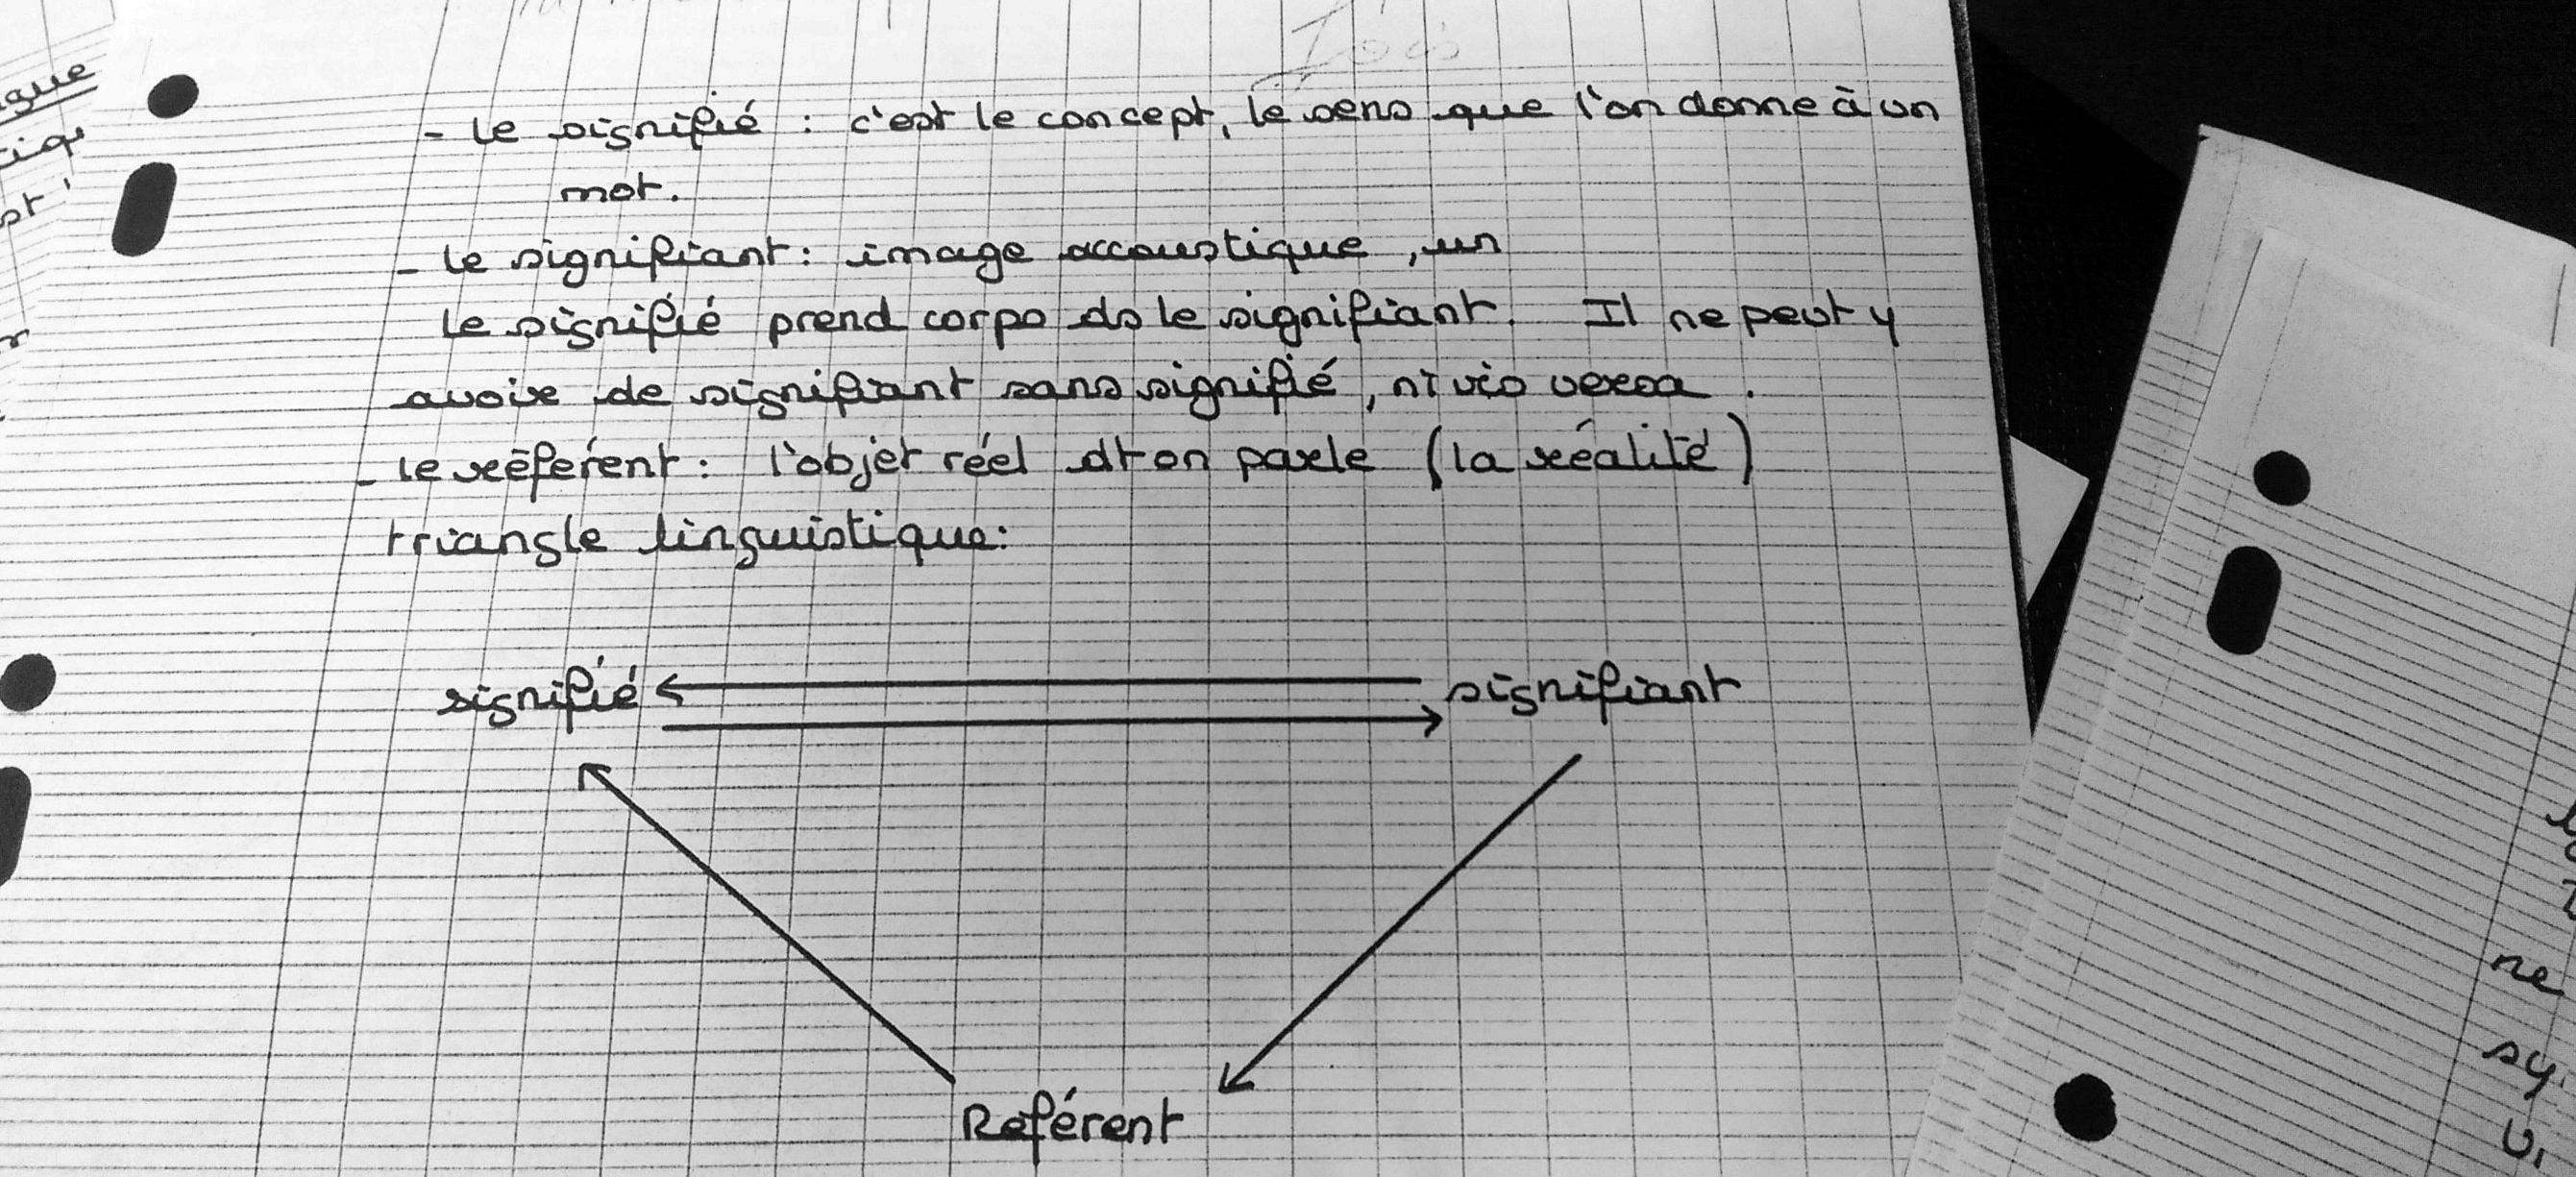 - le signifié : c'est le concept, le sens que l'on donne à un
mot.
- le signifiant : image accoustique, un
le signifié prend corps ds le signifiant. Il ne peut y
avoir de signifiant sans signifié, ni vis versa.
- le référent : l'objet réel dt on parle (la réalité)
triangle linguistique :
signifié signifiant
Referént
ne